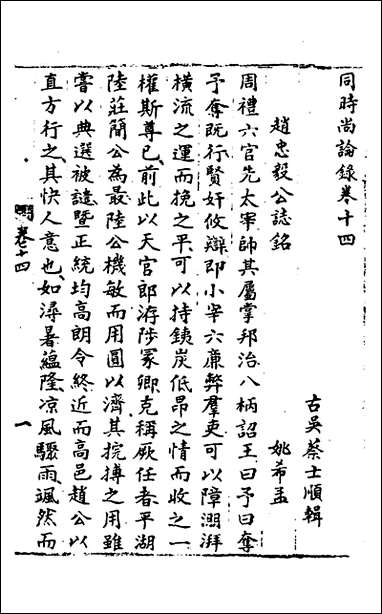 同時尚論錄卷十四
古吳蔡士順輯
趙忠毅公誌銘
姚希孟
周禮六官先太宰帥其屬掌邦治八柄詔王曰予曰奪
予奪既行賢奸攸辯即小宰六廉弊羣吏可以障溯湃
橫流之運而挽之平可以持銖炭低昂之情而收之一
權斯尊已前此以天官郎洊陟冢卿克稱厥任者平湖
陸莊簡公為最陸公機敏而用圓以濟其捖摶之用雖
嘗以典選被譴暨正統均高朗令終近而高邑趙公以
直方行之其快人意也如潯暑蘊隆凉風驟雨颯然而
卷十四
一